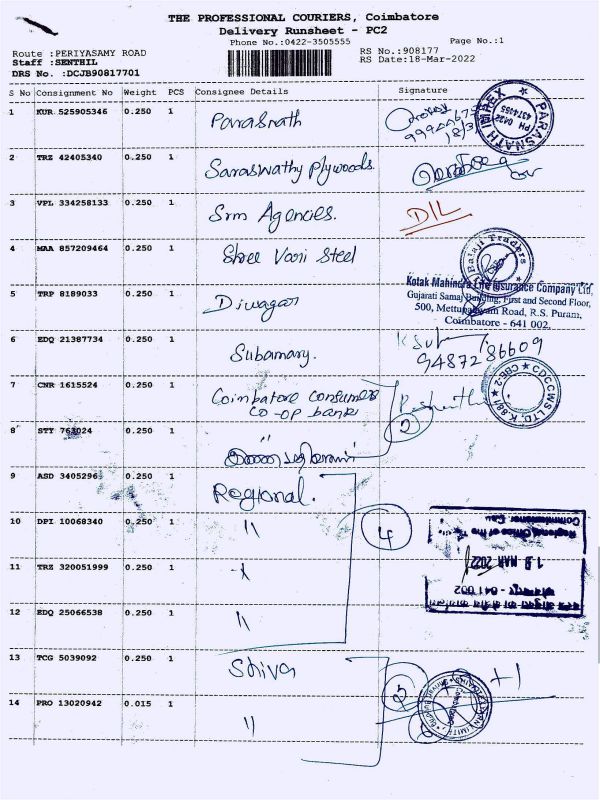 THE PROFESSIONAL COURIERS, Coimbatore
Delivery Runsheet - PC2
Phone No.:0422-3505555
Page No.:1
Route :PERIYASAMY ROAD
RS No.:908177
Staff :SENTHIL
RS Date:18-Mar-2022
DRS No. :DCJB90817701
S No Consignment No Weight PCS Consignee Details Signature
1 KUR 525905346 0.250 1 Parasnath
PARASNATH IMPEX
PH 0422
4374055
2 TRZ 42405340 0.250 1 Saraswathy Plywoods.
3 VPL 334258133 0.250 1 Srm Agencies. DIL
4 MAA 857209464 0.250 1 Shree Vari Steel
Balaji Traders
Kotak Mahindra Life Insurance Company Ltd,
Gujarati Samaj Building, First and Second Floor,
500, Mettupalayam Road, R.S. Puram,
Coimbatore - 641 002.
5 TRP 8189033 0.250 1 Diwagar
6 EDQ 21387734 0.250 1 Subamary.
9487286609
7 CNR 1615524 0.250 1 Coimbatore consumers
co-op bank
2
CDCCWS LTD. K 88/1 CBE-2
8 STY 763024 0.250 1 "
9 ASD 3405296 0.250 1 Regional.
4
10 DPI 10068340 0.250 1 "
18 MAR 2022
11 TRZ 320051999 0.250 1
12 EDQ 25066538 0.250 1 "
13 TCG 5039092 0.250 1 Shiva
+1
14 PRO 13020942 0.015 1 "